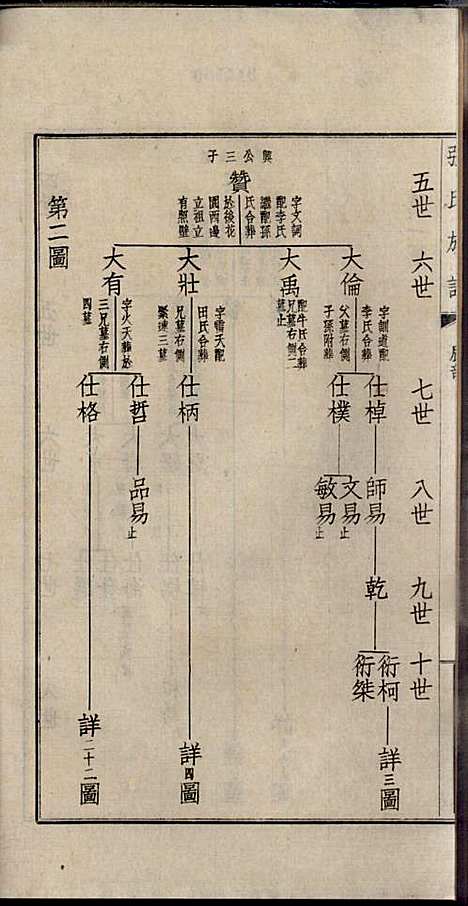 張氏族譜
五世
六世
七世
八世
九世
十世
興公三子
贊
字文詞
配李氏
繼配孫
氏合葬
於後花
園西邊
立祖立
有照壁
大倫
字訓道配
李氏合葬
父墓右側
子孫附葬
大禹
配牛氏合葬
兄墓右側二
墓止
大壯
字霸天配
田氏合葬
兄墓右側
繫連三墓
大有
字火天葬於
三兄墓右側
四墓
仕棹
仕樸
仕柄
仕哲
仕格
師易
文易止
敏易止
品易止
乾
衍柯
衍桀
詳三圖
詳四圖
詳二十二圖
第二圖